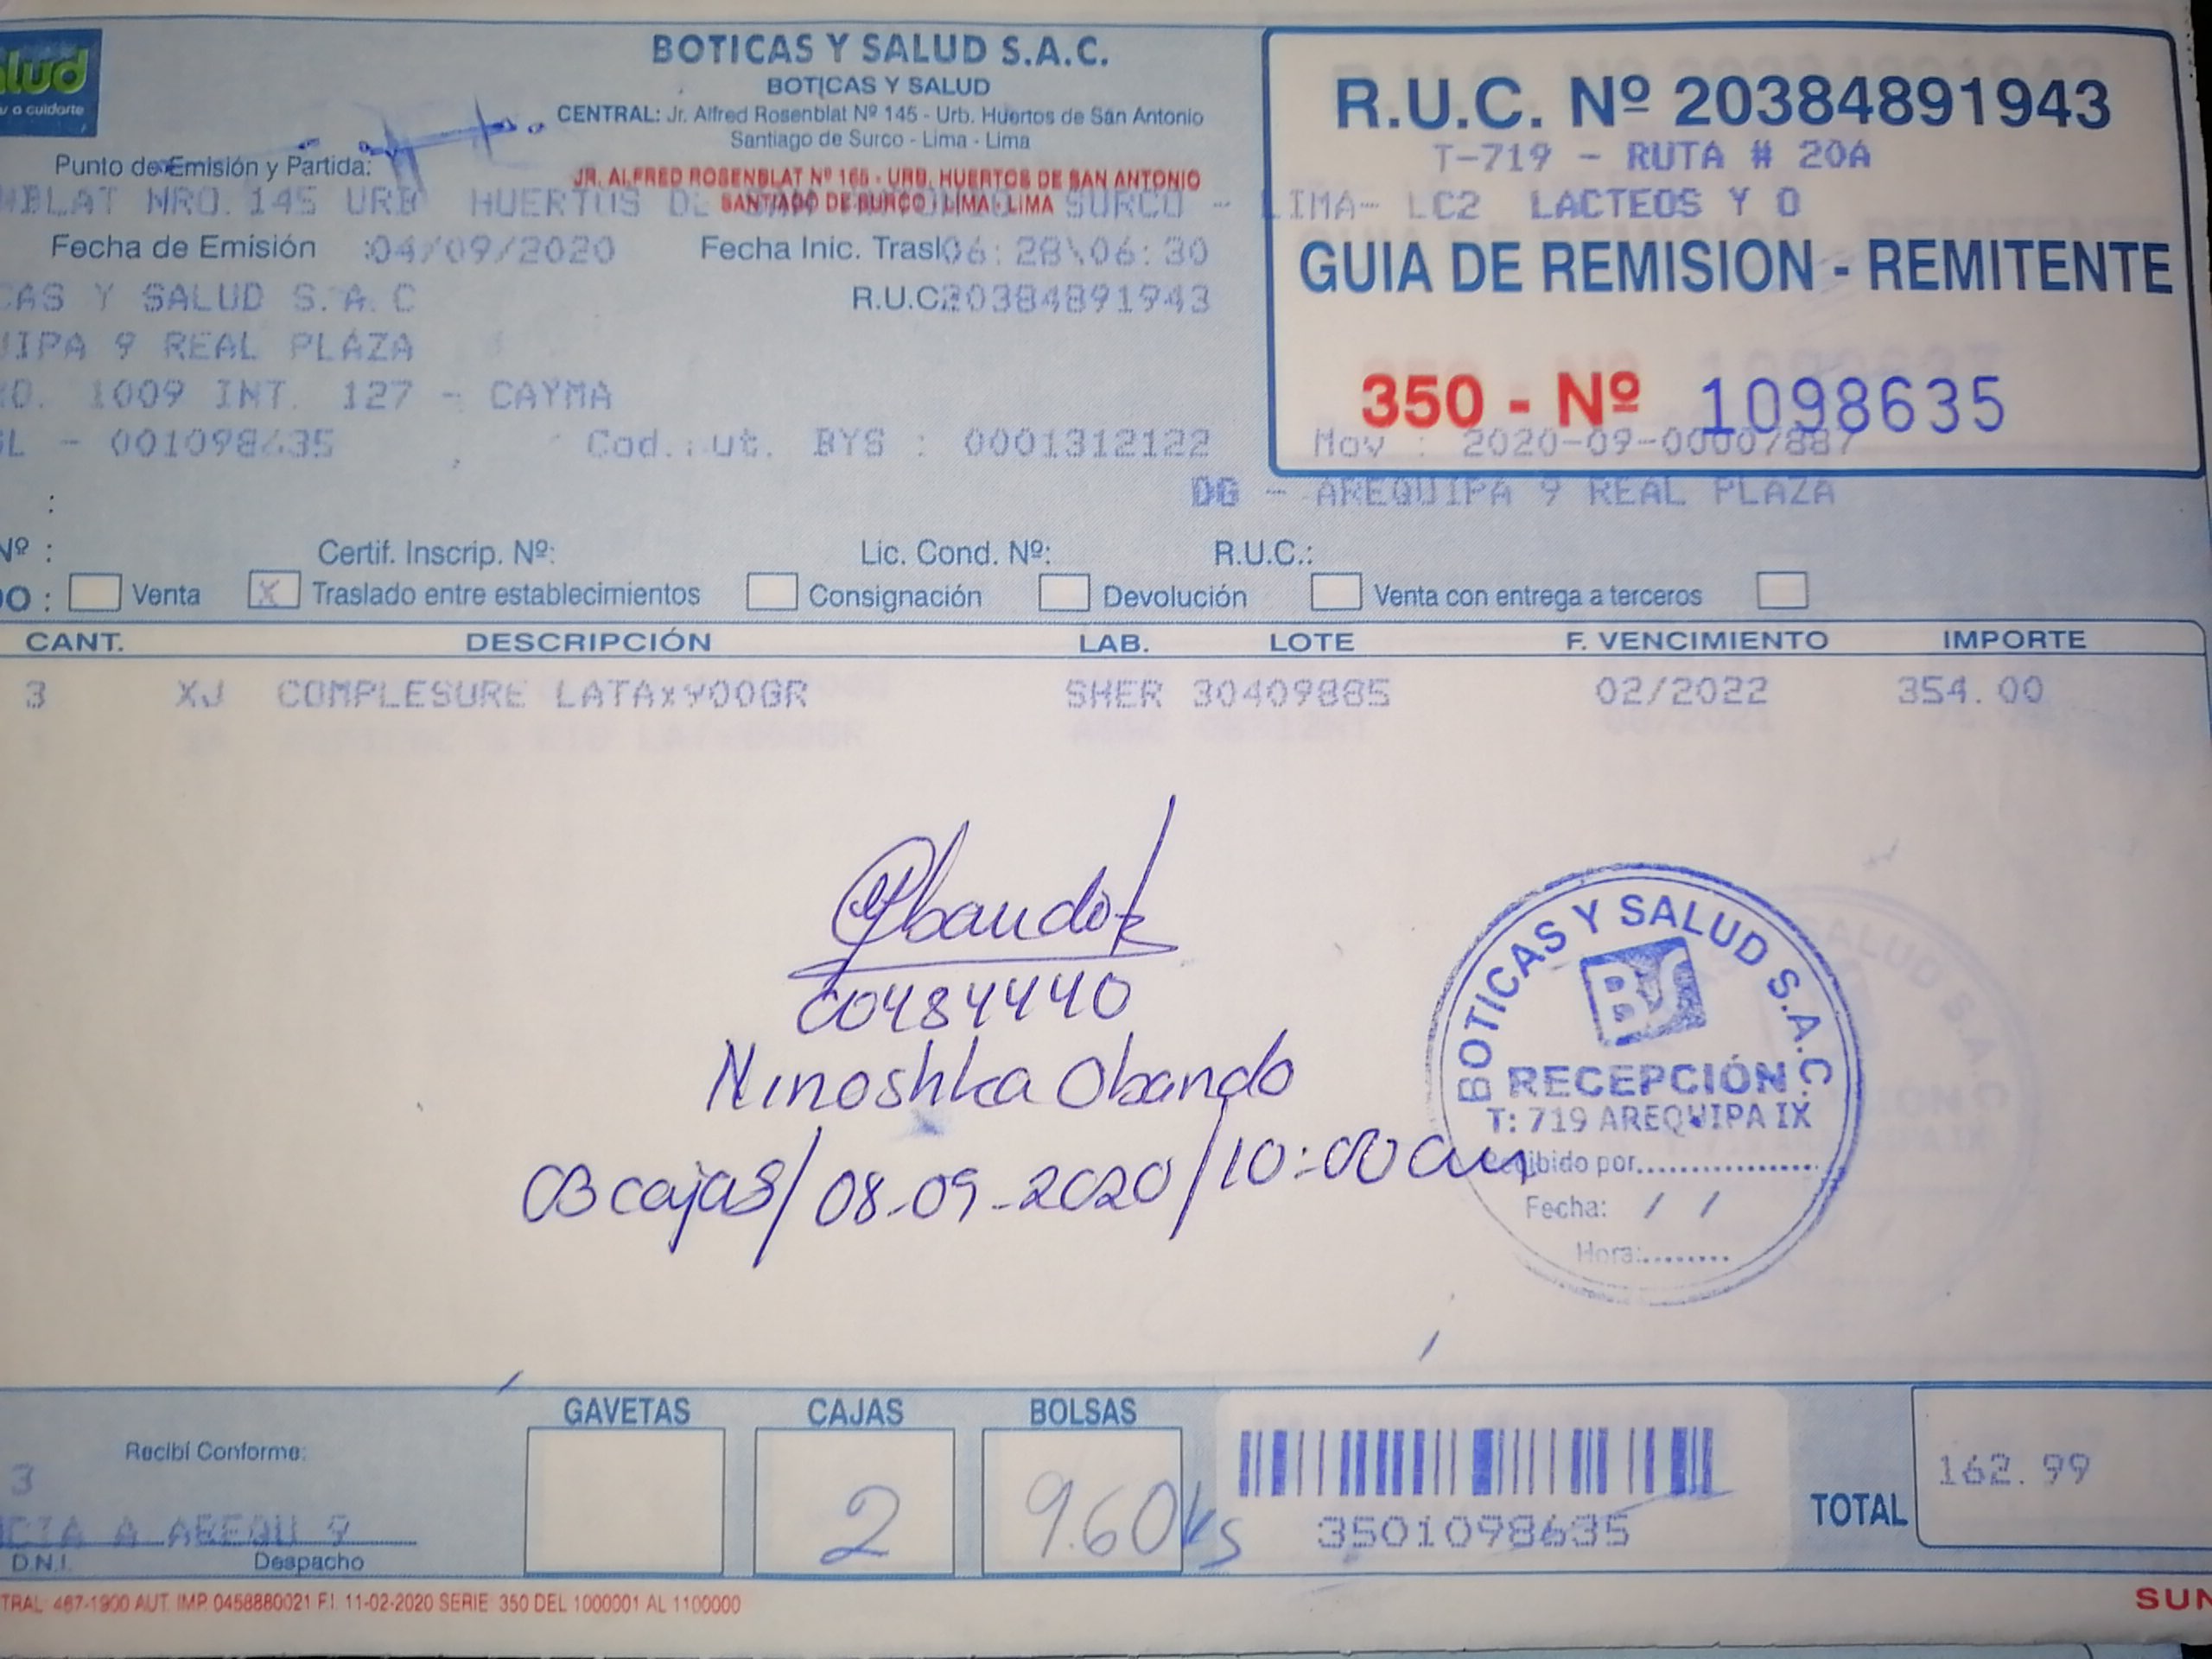 BOTICAS Y SALUD S.A.C.
BOTICAS Y SALUD
CENTRAL: Jr. Alfred Rosenblat Nº 145 - Urb. Huertos de San Antonio
Santiago de Surco - Lima - Lima
JR. ALFRED ROSENBLAT Nº 165 - URB. HUERTOS DE SAN ANTONIO
SANTIAGO DE SURCO - LIMA - LIMA
lud
a cuidarte
R.U.C. Nº 20384891943
T-719 - RUTA # 20A
LIMA- LC2 LACTEOS Y O
GUIA DE REMISION - REMITENTE
350 - Nº 1098635
Mov : 2020-09-00007887
Punto de Emisión y Partida:
BLAT NRO.145 URB HUERTOS DE SURCO -
Fecha de Emisión :04/09/2020 Fecha Inic. Trasl 06:28\06:30
CAS Y SALUD S.A.C R.U.C 20384891943
UIPA 9 REAL PLAZA
RO. 1009 INT. 127 - CAYMA
GL - 001098635 Cod. ut. BYS : 0001312122
DG - AREQUIPA 9 REAL PLAZA
Nº : Certif. Inscrip. Nº: Lic. Cond. Nº: R.U.C.:
DO : Venta X Traslado entre establecimientos Consignación Devolución Venta con entrega a terceros
CANT. DESCRIPCIÓN LAB. LOTE F. VENCIMIENTO IMPORTE
3 XJ COMPLESURE LATAx900GR SHER 30409885 02/2022 354.00
00484440
Ninoshka Obando
03 cajas/ 08-09-2020/10:00am
BOTICAS Y SALUD S.A.C.
BS
RECEPCIÓN
T: 719 AREQUIPA IX
Recibido por
Fecha: / /
Hora:
GAVETAS CAJAS BOLSAS
Recibí Conforme:
3
2 9.60ks
CIA A AREQU 9
D.N.I. Despacho
3501098635
TOTAL 162.99
TRAL: 467-1900 AUT. IMP. 0458880021 F.I. 11-02-2020 SERIE: 350 DEL 1000001 AL 1100000
SUN